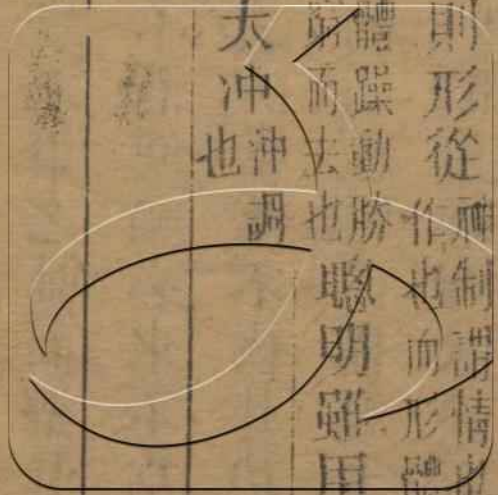 則形從
神制謂情
作也而形體
體躁動勝
而去也
聰明雖用
太冲
冲調
也